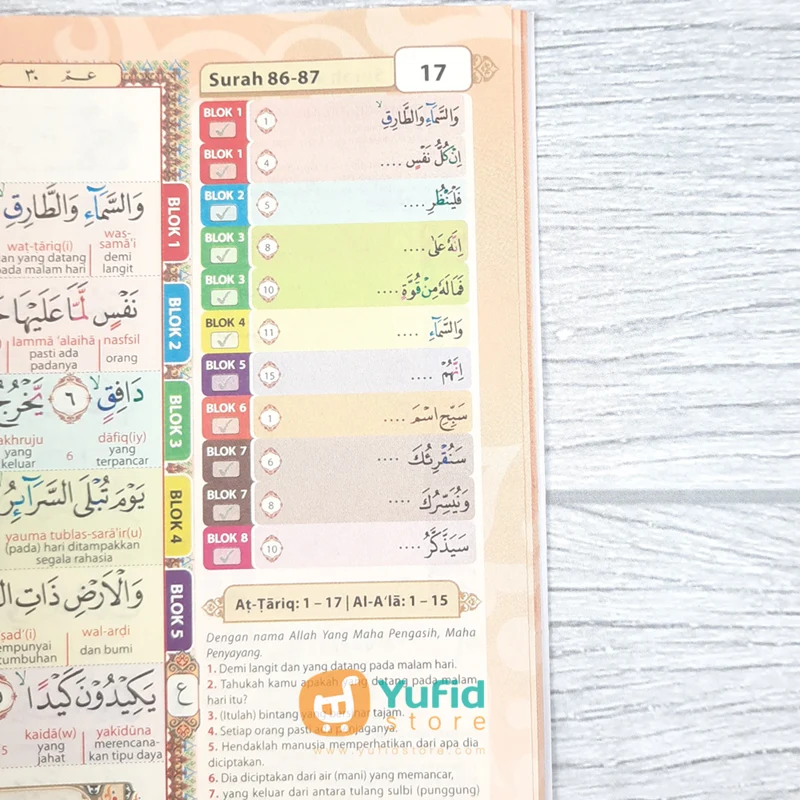 عمّ ٣٠
وَالسَّمَاءِ وَالطَّارِقِ
was-samā'i
wat-ṭāriq(i)
demi
langit
an yang datang
pada malam hari
BLOK 1
نَفْسٍ لَمَّا عَلَيْهَا
lammā 'alaihā
nasfsil
pasti ada
padanya
orang
BLOK 2
دَافِقٍ ٦ يَخْرُجُ
akhruju
dāfiq(iy)
yang
keluar
6
yang
terpancar
BLOK 3
يَوْمَ تُبْلَى السَّرَائِرُ
yauma tublas-sarā'ir(u)
(pada) hari ditampakkan
segala rahasia
BLOK 4
وَالْاَرْضِ ذَاتِ
ṣad'(i)
wal-arḍi
dan bumi
BLOK 5
يَكِيْدُوْنَ كَيْدًا
kaidā(w)
yakīdūna
yang
jahat
merencana-
kan tipu daya
ع
Surah 86-87
17
BLOK 1 1 وَالسَّمَاءِ وَالطَّارِقِ
BLOK 1 4 اِنْ كُلُّ نَفْسٍ ....
BLOK 2 5 فَلْيَنْظُرِ ....
BLOK 3 8 اِنَّهُ عَلٰى ....
BLOK 3 10 فَمَا لَهُ مِنْ قُوَّةٍ ....
BLOK 4 11 وَالسَّمَاءِ ....
BLOK 5 15 اِنَّهُمْ ....
BLOK 6 1 سَبِّحِ اسْمَ ....
BLOK 7 6 سَنُقْرِئُكَ ....
BLOK 7 8 وَنُيَسِّرُكَ ....
BLOK 8 10 سَيَذَّكَّرُ ....
Aṭ-Ṭāriq: 1 – 17 | Al-A'lā: 1 – 15
Dengan nama Allah Yang Maha Pengasih, Maha
Penyayang.
1. Demi langit dan yang datang pada malam hari.
2. Tahukah kamu apakah yang datang pada malam
hari itu?
3. (Itulah) bintang yang bersinar tajam.
4. Setiap orang pasti ada penjaganya.
5. Hendaklah manusia memperhatikan dari apa dia
diciptakan.
6. Dia diciptakan dari air (mani) yang memancar,
7. yang keluar dari antara tulang sulbi (punggung)
Yufid
store
www.yufidstore.com